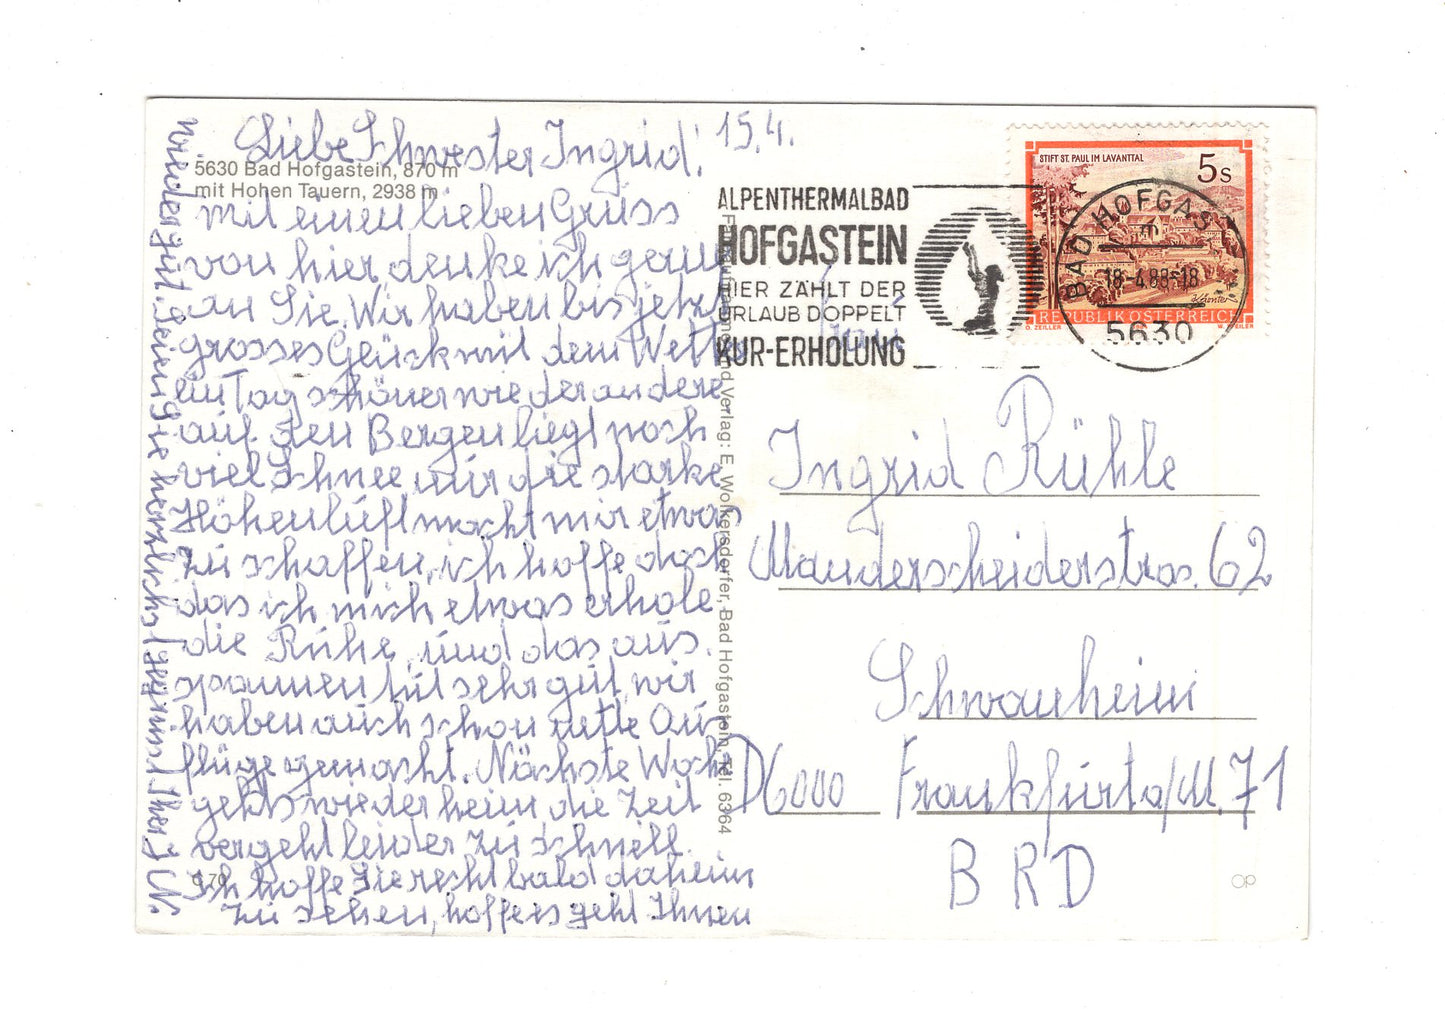 Liebe Schwester Ingrid! 15.4.
5630 Bad Hofgastein, 870 m
mit Hohen Tauern, 2938 m
mit einen lieben Grüss
von hier denke ich gerne
an Sie. Wir haben bis jetzt
grosses Glück mit dem Wetter
ein Tag schöner wie der andere
auf den Bergen liegt noch
viel Schnee nur die starke
Höhenlüft macht mir etwas
zu schaffen, ich hoffe doch
das ich mich etwas erhole
die Rühe, und das aus.
spannen tüt sehr güt, wir
haben auch schon nette Aus
flüge gemacht. Nächste Woche
gehts wieder heim, die Zeit
vergeht leider zu schnell.
Ich hoffe Sie recht bald daheim
zu sehen, hoffe es geht Ihnen
wieder güt. Seien Sie herzlichst gegrüsst Ihre
ALPENTHERMALBAD
HOFGASTEIN
HIER ZÄHLT DER
URLAUB DOPPELT
KUR-ERHOLUNG
STIFT ST. PAUL IM LAVANTTAL
5 S
Kärnten
REPUBLIK ÖSTERREICH
O. ZEILLER W. PFEILER
BAD HOFGAST
18.-4.88-18
5630
Verlag: E. Wolkersdorfer, Bad Hofgastein, Tel. 6364
Frau
Ingrid Rühle
Manderscheiderstras. 62
Schwanheim
D6000 Frankfurt a/M. 71
BRD